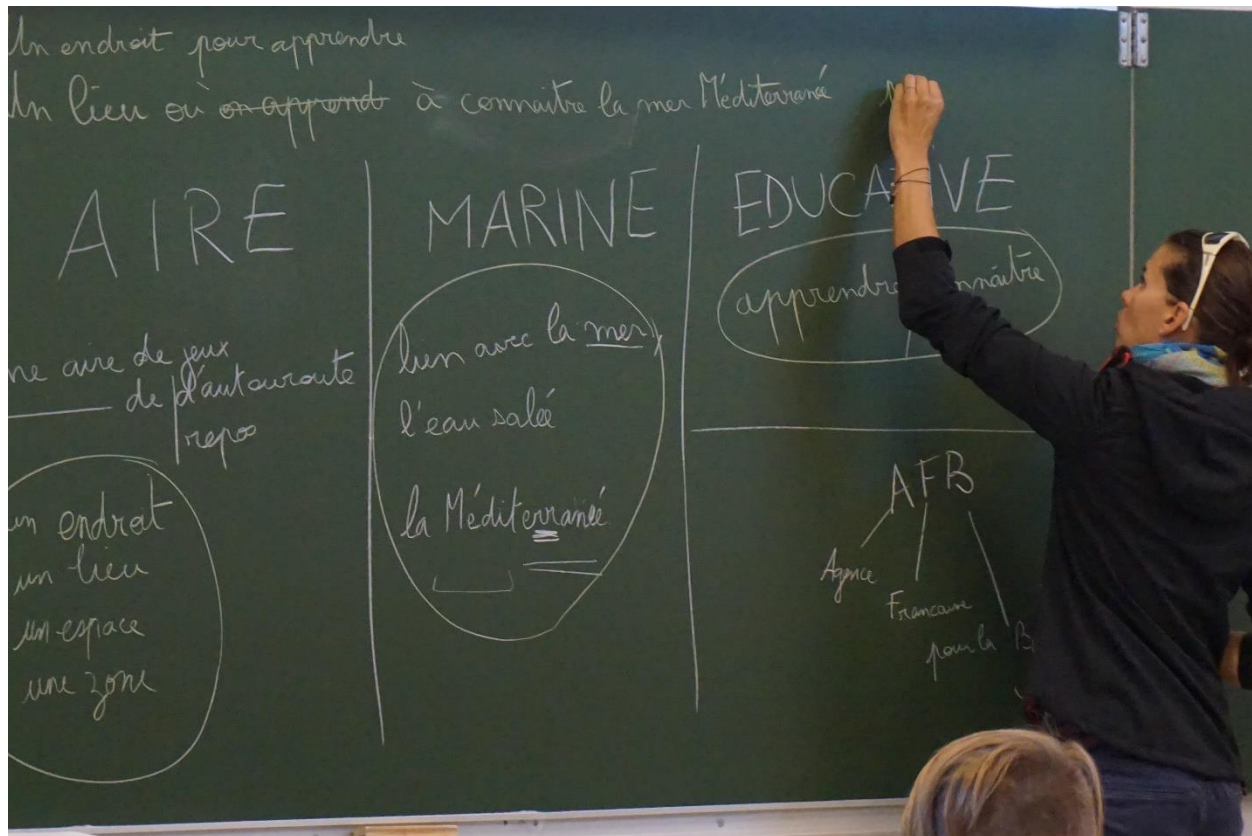 Un endroit pour apprendre
Un lieu où on apprend à connaitre la mer Méditerranée
AIRE
ne aire de jeux
de d'autouroute
repos
un endroit
un lieu
un espace
une zone
MARINE
lien avec la mer
l'eau salée
la Méditerranée
EDUCATIVE
apprendre nnaître
AFB
Agence
Francaise
pour la B